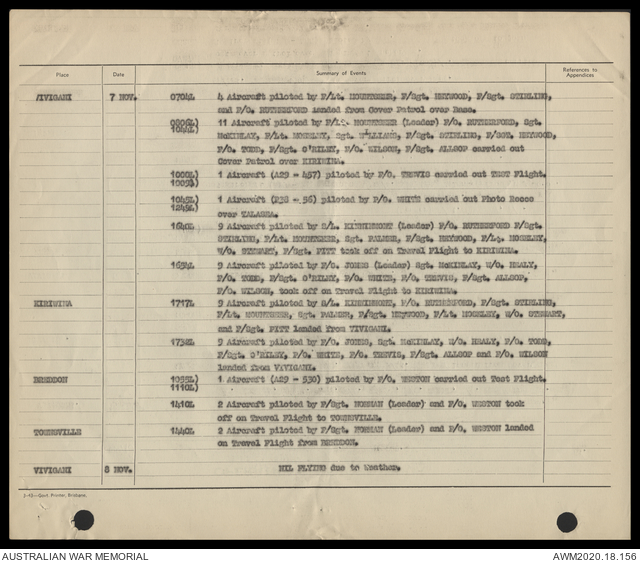 Place Date Summary of Events References to Appendices
VIVIGANI 7 NOV. 0704L 4 Aircraft piloted by F/Lt. MOUNTSEER, F/Sgt. HEYWOOD, F/Sgt. STIRLING,
and F/O. RUTHERFORD landed from Cover Patrol over Base.
0806L) 11 Aircraft piloted by F/Lt. MOUNTSEER (Leader) F/O. RUTHERFORD, Sgt.
1044L) McKINLAY, F/Lt. MOSELEY, Sgt. WILLIAMS, F/Sgt. STIRLING, F/SGT. HEYWOOD,
F/O. TODD, F/Sgt. O'RILEY, F/O. WILSON, F/Sgt. ALLSOP carried out
Cover Patrol over KIRIWINA.
1000L) 1 Aircraft (A29 - 457) piloted by F/O. TREVIS carried out TEST Flight.
1005L)
1045L) 1 Aircraft (P38 - 56) piloted by F/O. WHITE carried out Photo Recce
1245L) over TALASEA.
1640L 9 Aircraft piloted by S/L. KINNINMONT (Leader) F/O. RUTHERFORD F/Sgt.
STIRLING, F/Lt. MOUNTSEER, Sgt. PALMER, F/Sgt. HEYWOOD, F/Lt. MOSELEY,
W/O. STEWART, F/Sgt. PITT took off on Travel Flight to KIRIWINA.
1654L 9 Aircraft piloted by F/O. JONES (Leader) Sgt. McKINLAY, W/O. HEALY,
F/O. TODD, F/Sgt. O'RILEY, F/O. WHITE, F/O. TREVIS, F/Sgt. ALLSOP,
F/O. WILSON, took off on Travel Flight to KIRIWINA.
KIRIWINA 1717L 9 Aircraft piloted by S/L. KINNINMONT, F/O. RUTHERFORD, F/Sgt. STIRLING,
F/Lt. MOUNTSEER, Sgt. PALMER, F/Sgt. HEYWOOD, F/Lt. MOSELEY, W/O. STEWART,
and F/Sgt. PITT landed from VIVIGANI.
1732L 9 Aircraft piloted by F/O. JONES, Sgt. McKINLAY, W/O. HEALY, F/O. TODD,
F/Sgt. O'RILEY, F/O. WHITE, F/O. TREVIS, F/Sgt. ALLSOP and F/O. WILSON
landed from VIVIGANI.
BREDDON 1055L) 1 Aircraft (A29 - 530) piloted by F/O. WESTON carried out Test Flight.
1110L)
1410L 2 Aircraft piloted by F/Sgt. NORMAN (Leader) and F/O. WESTON took
off on Travel Flight to TOWNSVILLE.
TOWNSVILLE 1440L 2 Aircraft piloted by F/Sgt. NORMAN (Leader) and F/O. WESTON landed
on Travel Flight from BREDDON.
VIVIGANI 8 NOV. NIL FLYING due to Weather.
Govt. Printer, Brisbane.
AUSTRALIAN WAR MEMORIAL AWM2020.18.156